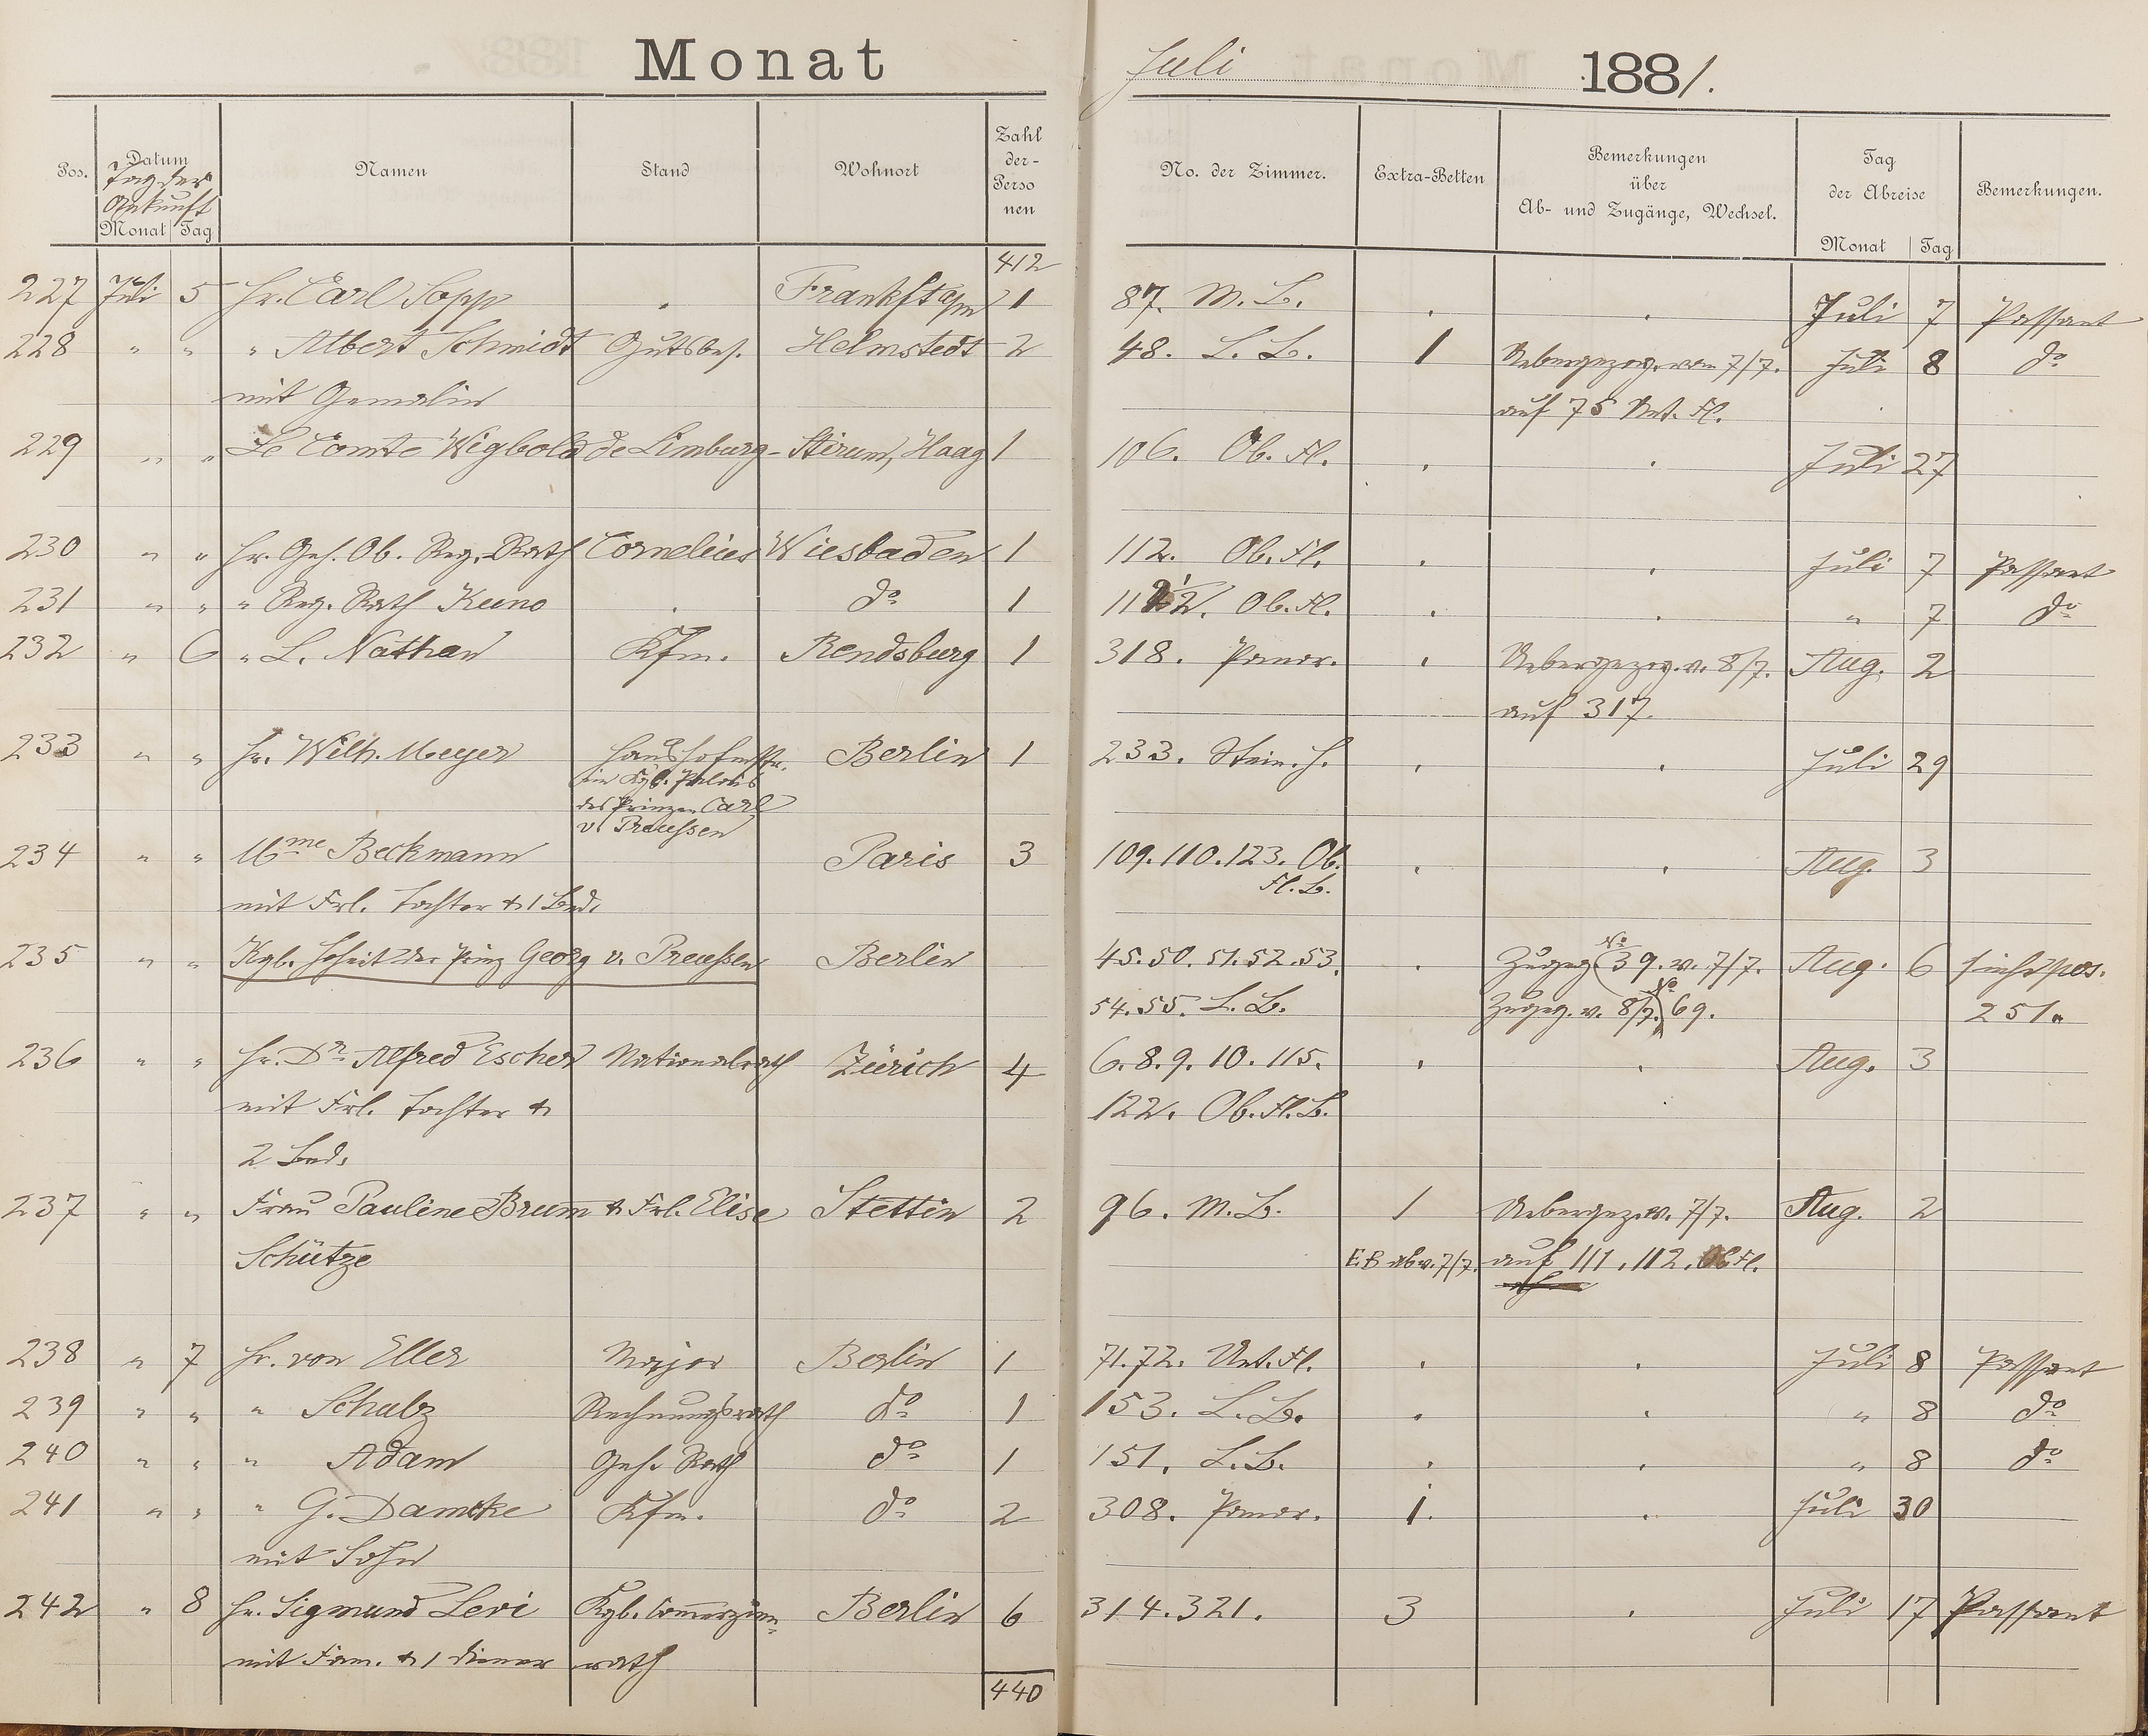 Monat Juli 1881.
Pos. Datum Tag der Ankunft Monat Tag Namen Stand Wohnort Zahl der-Personen No. der Zimmer. Extra-Betten Bemerkungen über Ab- und Zugänge, Wechsel. Tag der Abreise Monat Tag Bemerkungen.
412
227 Juli 5 Hr. Carl Sopp . Frankft a/m 1 87. M. B. . . Juli 7 Passant
228 " " " Albert Schmidt Gutsbes. Helmstedt 2 48. L. B. 1 Uebergezog. vom 7/7. Juli 8 do
mit Gemalin auf 75 Unt. Fl.
229 " " Le Comte Wigbold de Limburg-Stirum, Haag 1 106. Ob. Fl. . . Juli 27
230 " " Hr. Geh. Ob. Reg. Rath Cornelius Wiesbaden 1 112. Ob. Fl. . . Juli 7 Passant
231 " " " Reg. Rath Kuno . do 1 Ob. Fl. . . " 7 do
232 " 6 " L. Nathan Kfm. Rendsburg 1 318. Pomer. . Uebergezog. v. 8/7. Aug. 2
auf 317.
233 " " Hr. Wilh. Meyer Haushofmstr. Berlin 1 233. Stein. H. . . Juli 29
im Kgl. Palais
des Prinzen Carl
v. Preussen
234 " " Mme Beckmann Paris 3 109. 110. 123. Ob. . . Aug. 3
Fl. B.
mit Frl. Tochter & 1 Bed.
235 " " Kgl. Hoheit der Prinz Georg v. Preussen Berlin 45. 50. 51. 52. 53. . Zugeg No 39. v. 7/7. Aug. 6 siehe pos.
54. 55. L. B. Zugeg. v. 8/7. No 69. 251.
236 " " Hr. Dr. Alfred Escher Nationalrath Zürich 4 6. 8. 9. 10. 115. . . Aug. 3
mit Frl. Tochter & 122. Ob. Fl. B.
2 Bed.
237 " " Frau Pauline Brumm & Frl. Elise Stettin 2 96. M. B. 1 Uebergez. v. 7/7. Aug. 2
Schütze E. B ab v. 7/7. auf 111, 112. Ob Fl.
238 " 7 Hr. von Eller Major Berlin 1 71. 72. Unt. Fl. . . Juli 8 Passant
239 " " " Schulz Rechnungsrath do 1 153. L. B. . . " 8 do
240 " " " Adam Geh. Rath do 1 151. L. B. . . " 8 do
241 " " " G. Damcke Kfm. do 2 308. Pomer. 1. . Juli 30
mit Sohn
242 " 8 Hr. Sigmund Levi Kgl. Commerzien- Berlin 6 314. 321. 3 . Juli 17 Passant
mit Fam. & 1 Diener rath
440